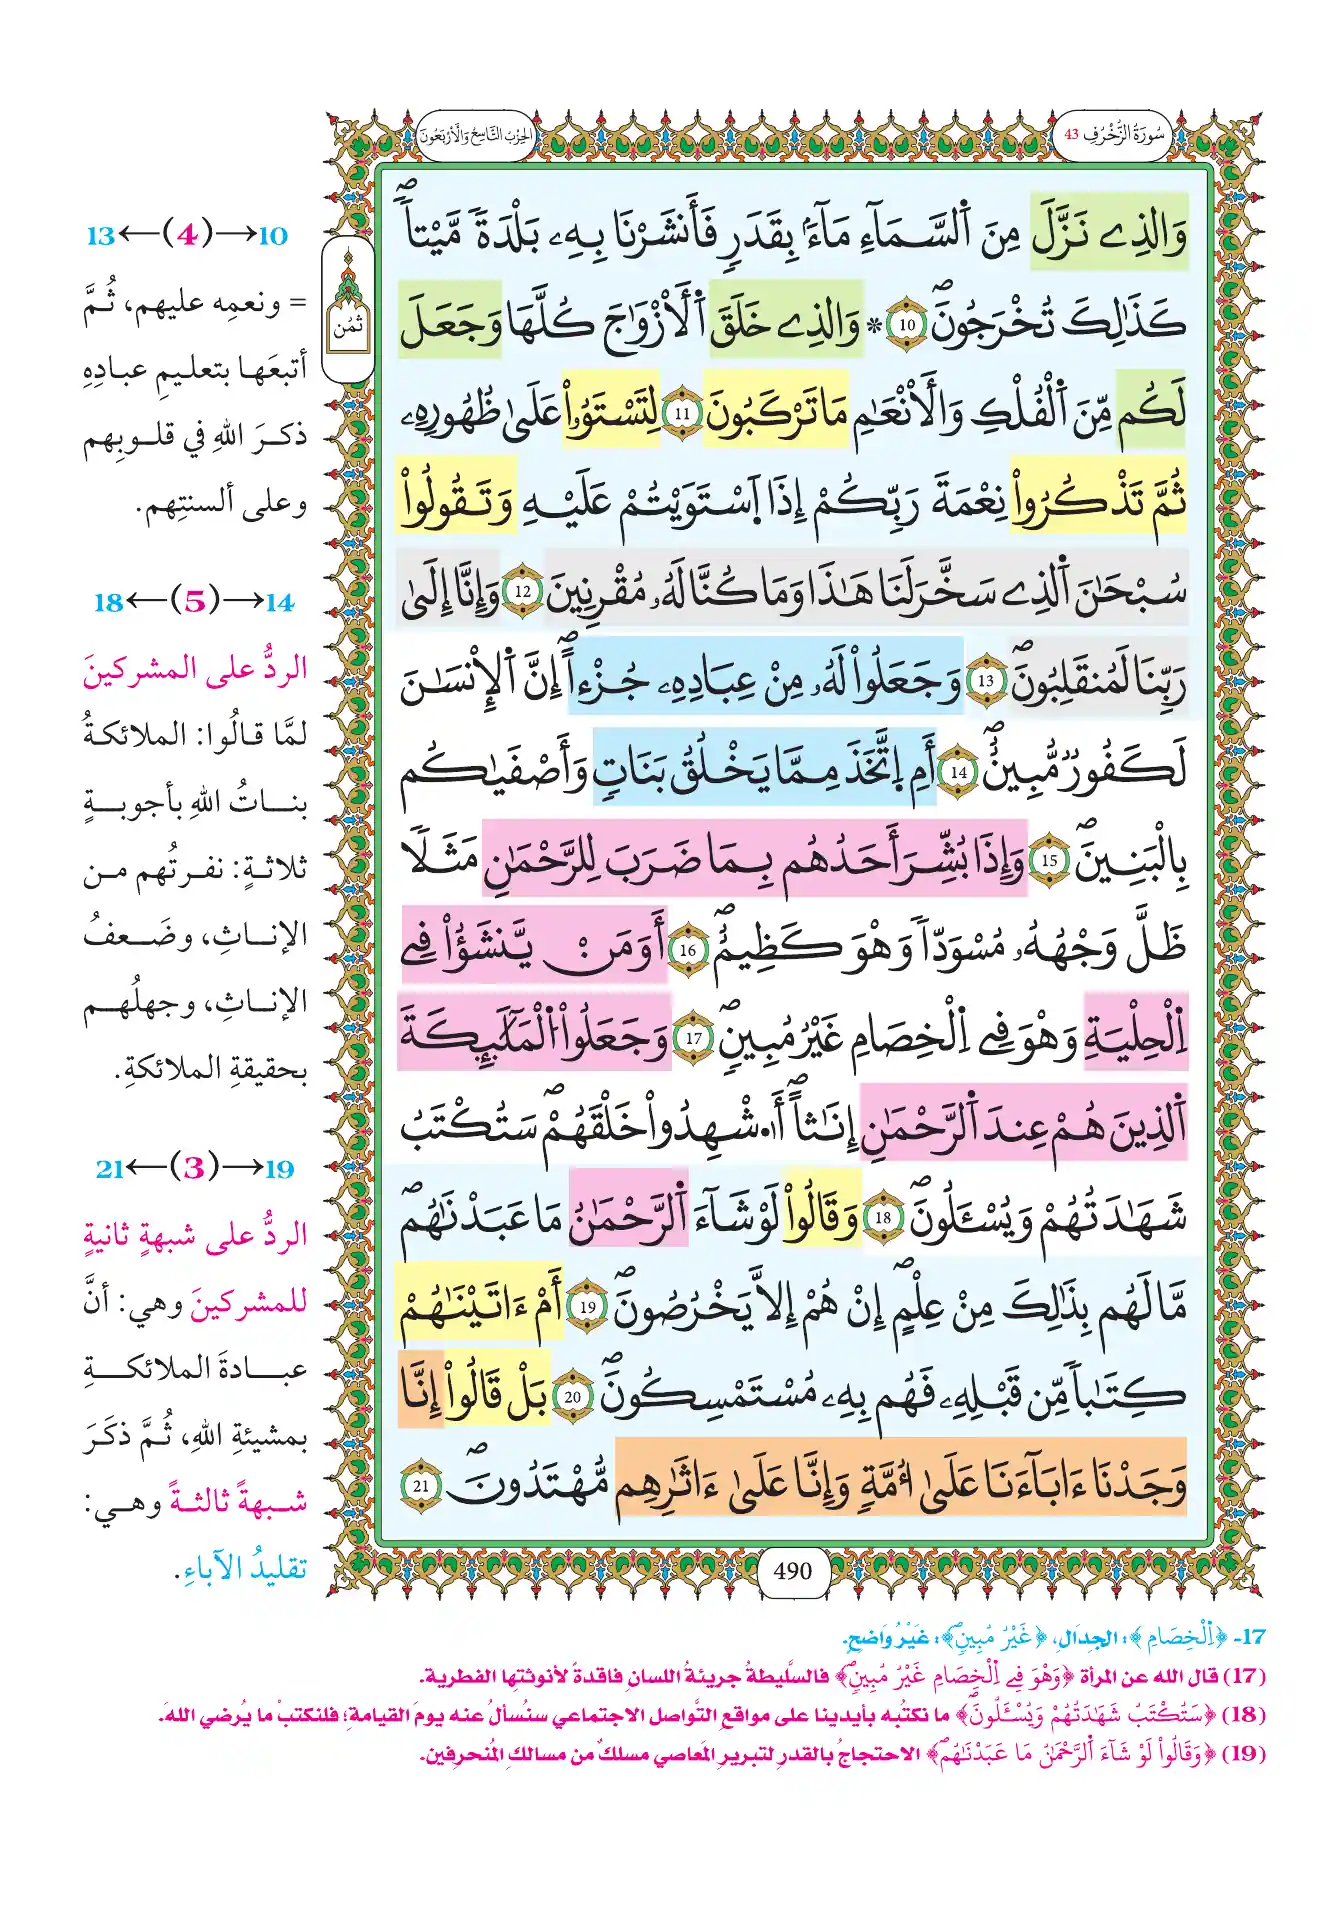 سُورَةُ الزُّخْرُفِ 43
الحِزْبُ التَّاسِعُ وَالأَرْبَعُونَ
وَالذِے نَزَّلَ مِنَ اَ۬لسَّمَآءِ مَآءَۢ بِقَدَرٖ فَأَنشَرْنَا بِهِۦ بَلْدَةٗ مَّيْتاٗۖ
كَذَٰلِكَ تُخْرَجُونَۖ 10 * وَالذِے خَلَقَ اَ۬لْأَزْوَٰجَ كُلَّهَا وَجَعَلَ
لَكُم مِّنَ اَ۬لْفُلْكِ وَالْأَنْعَٰمِ مَا تَرْكَبُونَ 11 لِتَسْتَوُۥاْ عَلَىٰ ظُهُورِهِۦ
ثُمَّ تَذْكُرُواْ نِعْمَةَ رَبِّكُمْ إِذَا اَ۪سْتَوَيْتُمْ عَلَيْهِ وَتَقُولُواْ
سُبْحَٰنَ اَ۬لذِے سَخَّرَ لَنَا هَٰذَا وَمَا كُنَّا لَهُۥ مُقْرِنِينَ 12 وَإِنَّا إِلَىٰ
رَبِّنَا لَمُنقَلِبُونَۖ 13 وَجَعَلُواْ لَهُۥ مِنْ عِبَادِهِۦ جُزْءاًۖ إِنَّ اَ۬لْإِنْسَٰنَ
لَكَفُورٞ مُّبِينٌۖ 14 أَمِ اِ۪تَّخَذَ مِمَّا يَخْلُقُ بَنَاتٖ وَأَصْفَيٰكُم
بِالْبَنِينَۖ 15 وَإِذَا بُشِّرَ أَحَدُهُم بِمَا ضَرَبَ لِلرَّحْمَٰنِ مَثَلاٗ
ظَلَّ وَجْهُهُۥ مُسْوَدّاٗ وَهْوَ كَظِيمٌۖ 16 أَوَمَنْ يَّنشَؤُاْ فِے
اِ۬لْحِلْيَةِ وَهْوَ فِے اِ۬لْخِصَامِ غَيْرُ مُبِينٖۖ 17 وَجَعَلُواْ اُ۬لْمَلَٰٓئِكَةَ
اَ۬لذِينَ هُمْ عِندَ اَ۬لرَّحْمَٰنِ إِنَٰثاًۖ أَ۟شْهِدُواْ خَلْقَهُمْۖ سَتُكْتَبُ
شَهَٰدَتُهُمْ وَيُسْـَٔلُونَۖ 18 وَقَالُواْ لَوْ شَآءَ اَ۬لرَّحْمَٰنُ مَا عَبَدْنَٰهُمۖ
مَّا لَهُم بِذَٰلِكَ مِنْ عِلْمٍۖ إِنْ هُمْ إِلَّا يَخْرُصُونَۖ 19 أَمْ ءَاتَيْنَٰهُمْ
كِتَٰباٗ مِّن قَبْلِهِۦ فَهُم بِهِۦ مُسْتَمْسِكُونَۖ 20 بَلْ قَالُواْ إِنَّا
وَجَدْنَا ءَابَآءَنَا عَلَىٰ أُمَّةٖ وَإِنَّا عَلَىٰ ءَاثَٰرِهِم مُّهْتَدُونَۖ 21
ثُمُن
10→(4)←13
= ونعمِه عليهم، ثُمَّ
أتبعَها بتعليمِ عبادِهِ
ذكرَ اللهِ في قلوبِهم
وعلى ألسنتِهم.
14→(5)←18
الردُّ على المشركينَ
لمَّا قالُوا: الملائكةُ
بناتُ اللهِ بأجوبةٍ
ثلاثةٍ: نفرتُهم من
الإناثِ، وضَعفُ
الإناثِ، وجهلُهم
بحقيقةِ الملائكةِ.
19→(3)←21
الردُّ على شبهةٍ ثانيةٍ
للمشركينَ وهي: أنَّ
عبادةَ الملائكةِ
بمشيئةِ اللهِ، ثُمَّ ذكَرَ
شبهةً ثالثةً وهي:
تقليدُ الآباءِ.
490
17- ﴿اِ۬لْخِصَامِ﴾: الجدال، ﴿غَيْرُ مُبِينٖۖ﴾: غيرُ واضحٍ.
(17) قال الله عن المرأة ﴿وَهْوَ فِے اِ۬لْخِصَامِ غَيْرُ مُبِينٖۖ﴾ فالسَّليطةُ جريئةُ اللسانِ فاقدةٌ لأنوثتها الفطرية.
(18) ﴿سَتُكْتَبُ شَهَٰدَتُهُمْ وَيُسْـَٔلُونَۖ﴾ ما نكتُبه بأيدينا على مواقع التَّواصل الاجتماعي سنُسألُ عنه يومَ القيامة؛ فلنكتبْ ما يُرضي اللهَ.
(19) ﴿وَقَالُواْ لَوْ شَآءَ اَ۬لرَّحْمَٰنُ مَا عَبَدْنَٰهُمۖ﴾ الاحتجاجُ بالقدرِ لتبريرِ المَعاصي مسلكٌ من مسالكِ المُنحرفِين.